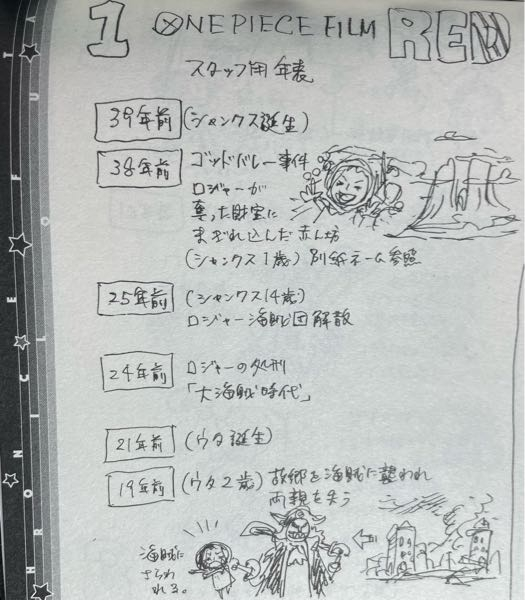 1 ONE PIECE FILM RED
スタッフ用年表
39年前 (シャンクス誕生)
38年前 ゴッドバレー事件
ロジャーが
奪った財宝に
まぎれ込んだ赤ん坊
(シャンクス1歳) 別紙ネーム参照
25年前 (シャンクス14歳)
ロジャー海賊団解散
24年前 ロジャーの処刑
「大海賊時代」
21年前 (ウタ誕生)
19年前 (ウタ2歳) 故郷を海賊に襲われ
両親を失う
海賊に
さらわ
れる。